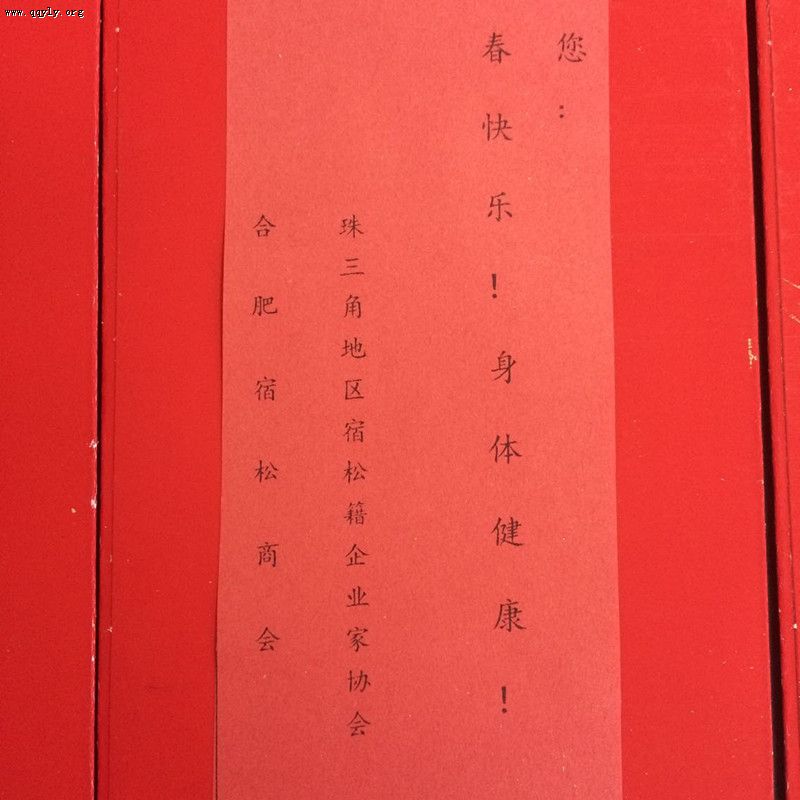 www.qqyly.org
您：
春快乐！身体健康！
珠三角地区宿松籍企业家协会
合肥宿松商会